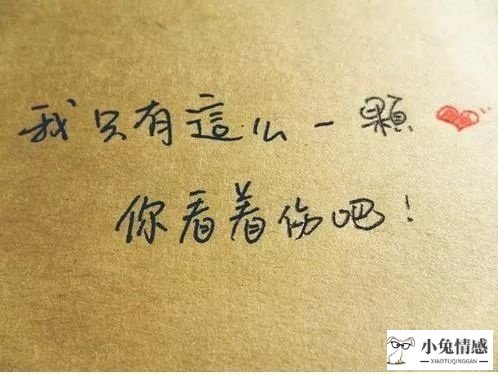 我只有這么一顆❤
你看着伤吧!
小兔情感
XIAOTUQINGGAN